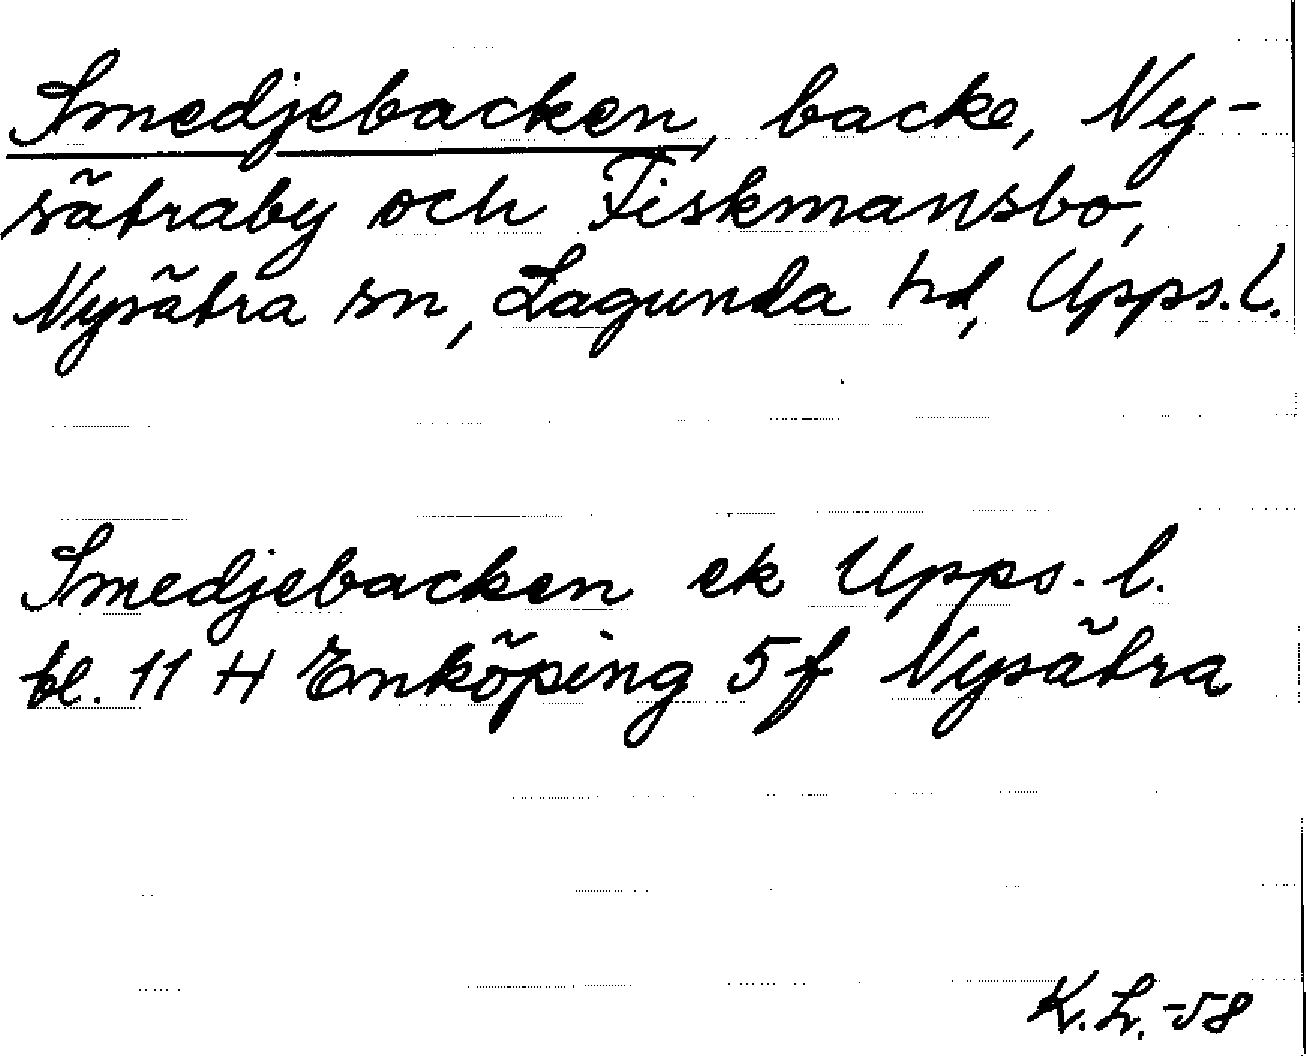 Smedjebacken, backe, Ny-
sätraby och Fiskmansbo,
Nysätra sn, Lagunda hd, Upps.l.
Smedjebacken ek Upps. l.
bl. 11 H Enköping 5 f Nysätra
K.L. -58